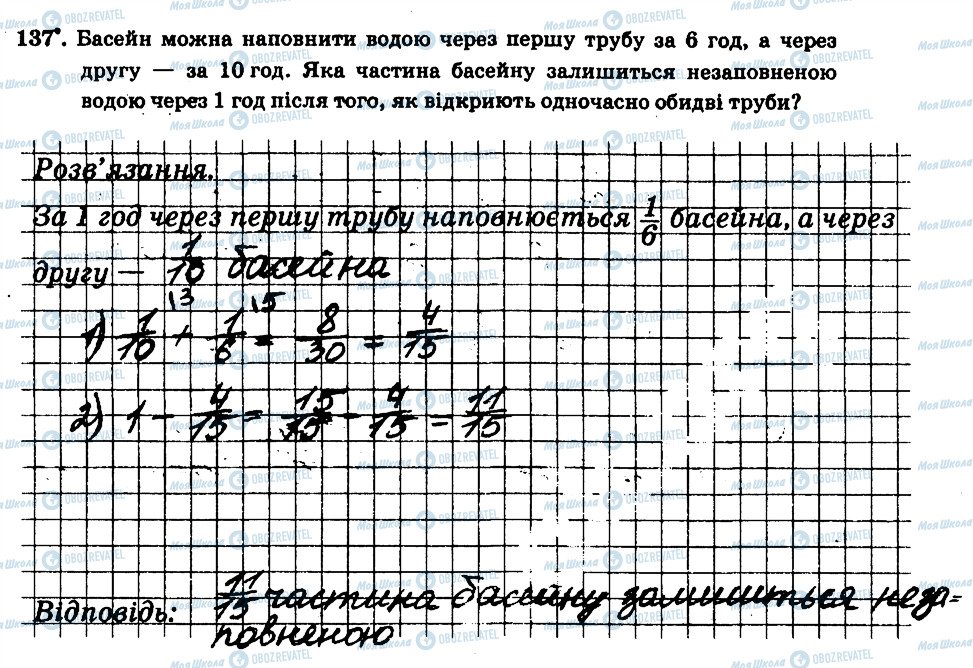 137°. Басейн можна наповнити водою через першу трубу за 6 год, а через
другу — за 10 год. Яка частина басейну залишиться незаповненою
водою через 1 год після того, як відкриють одночасно обидві труби?
Розв'язання.
За 1 год через першу трубу наповнюється 1/6 басейна, а через
другу — 1/10 басейна
1) 1/10 \3 + 1/6 \5 = 8/30 = 4/15
2) 1 - 4/15 = 15/15 - 4/15 = 11/15
Відповідь: 11/15 частина басейну залишиться неза=
повненою